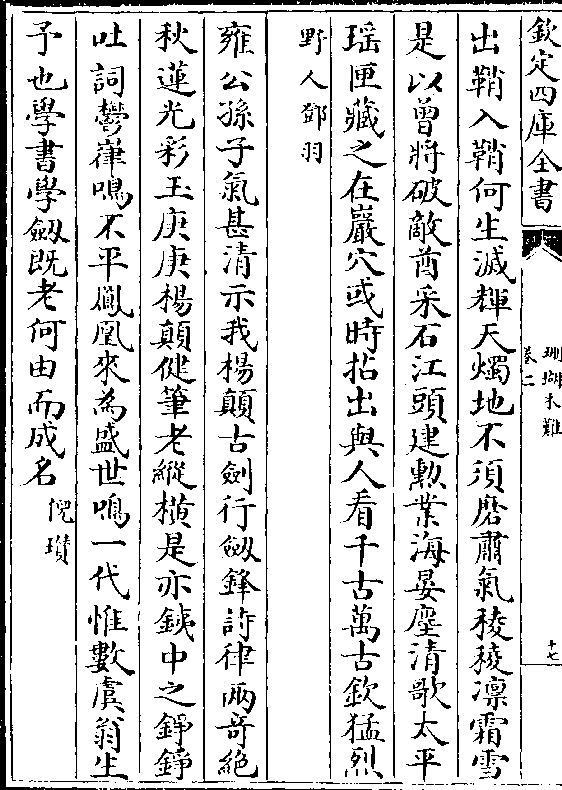 欽定四庫全書
珊瑚木難
卷二
十七
出鞘入鞘何生滅輝天燭地不須磨肅氣稜稜凛霜雪
是以曾將破敵酋采石江頭建勲業海晏塵清歌太平
瑶匣藏之在巖穴或時拈出與人看千古萬古欽猛烈
野人鄧羽
雍公孫子氣甚清示我楊顛古劍行劔鋒詩律兩竒絶
秋蓮光彩玉庚庚楊顛健筆老縱横是亦鐵中之錚錚
吐詞鬱嵂鳴不平鳳凰來為盛世鳴一代惟數虞翁生
予也學書學劔既老何由而成名
倪瓚